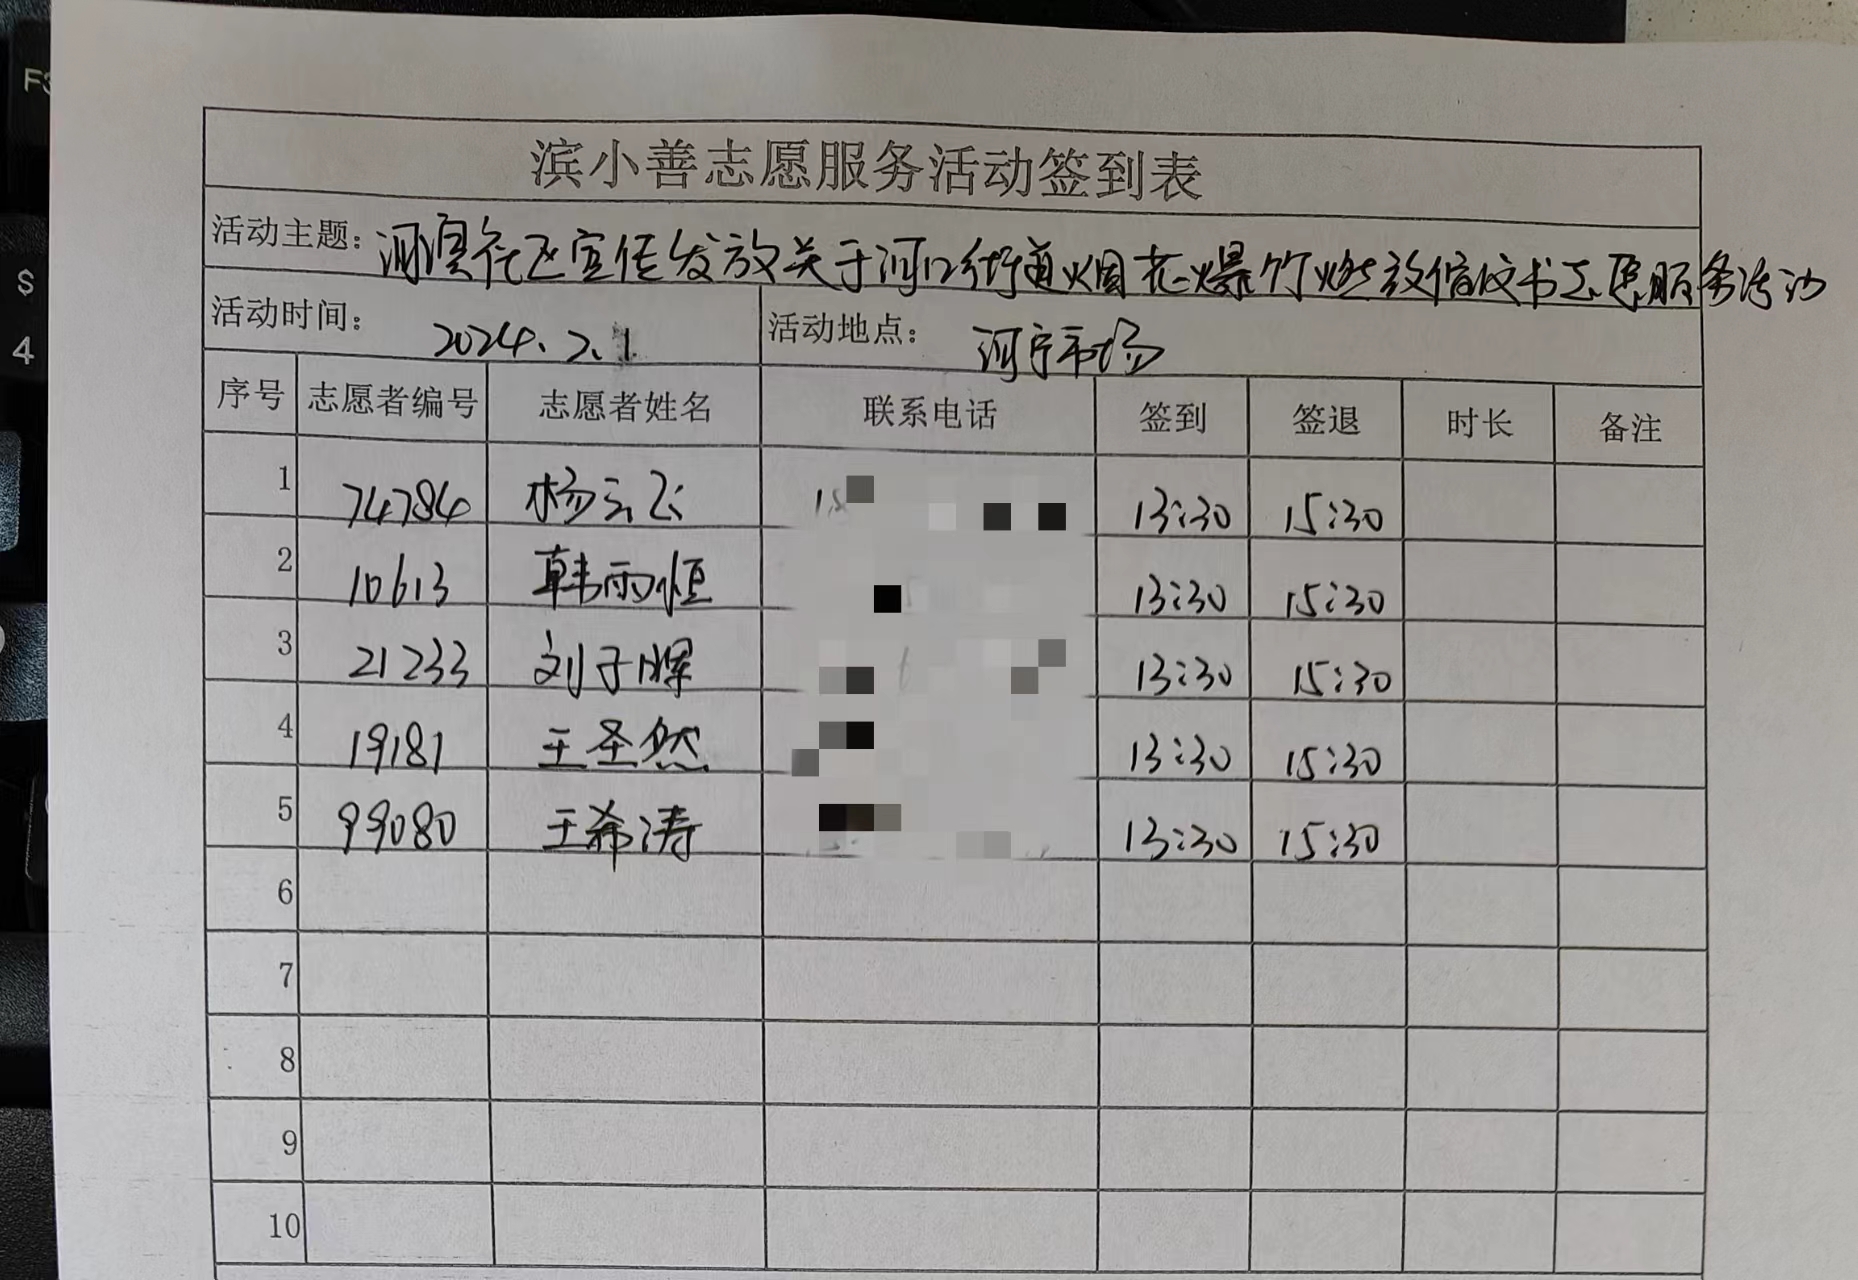 滨小善志愿服务活动签到表
活动主题：河滨社区宣传发放关于河口街道烟花爆竹燃放倡议书志愿服务活动
活动时间：2024.2.1 活动地点：河宁市场
序号 志愿者编号 志愿者姓名 联系电话 签到 签退 时长 备注
1 74784 杨云飞 13:30 15:30
2 10613 韩雨恒 13:30 15:30
3 21233 刘子晖 13:30 15:30
4 19181 王圣然 13:30 15:30
5 99080 王希涛 13:30 15:30
6
7
8
9
10
F3
$
4